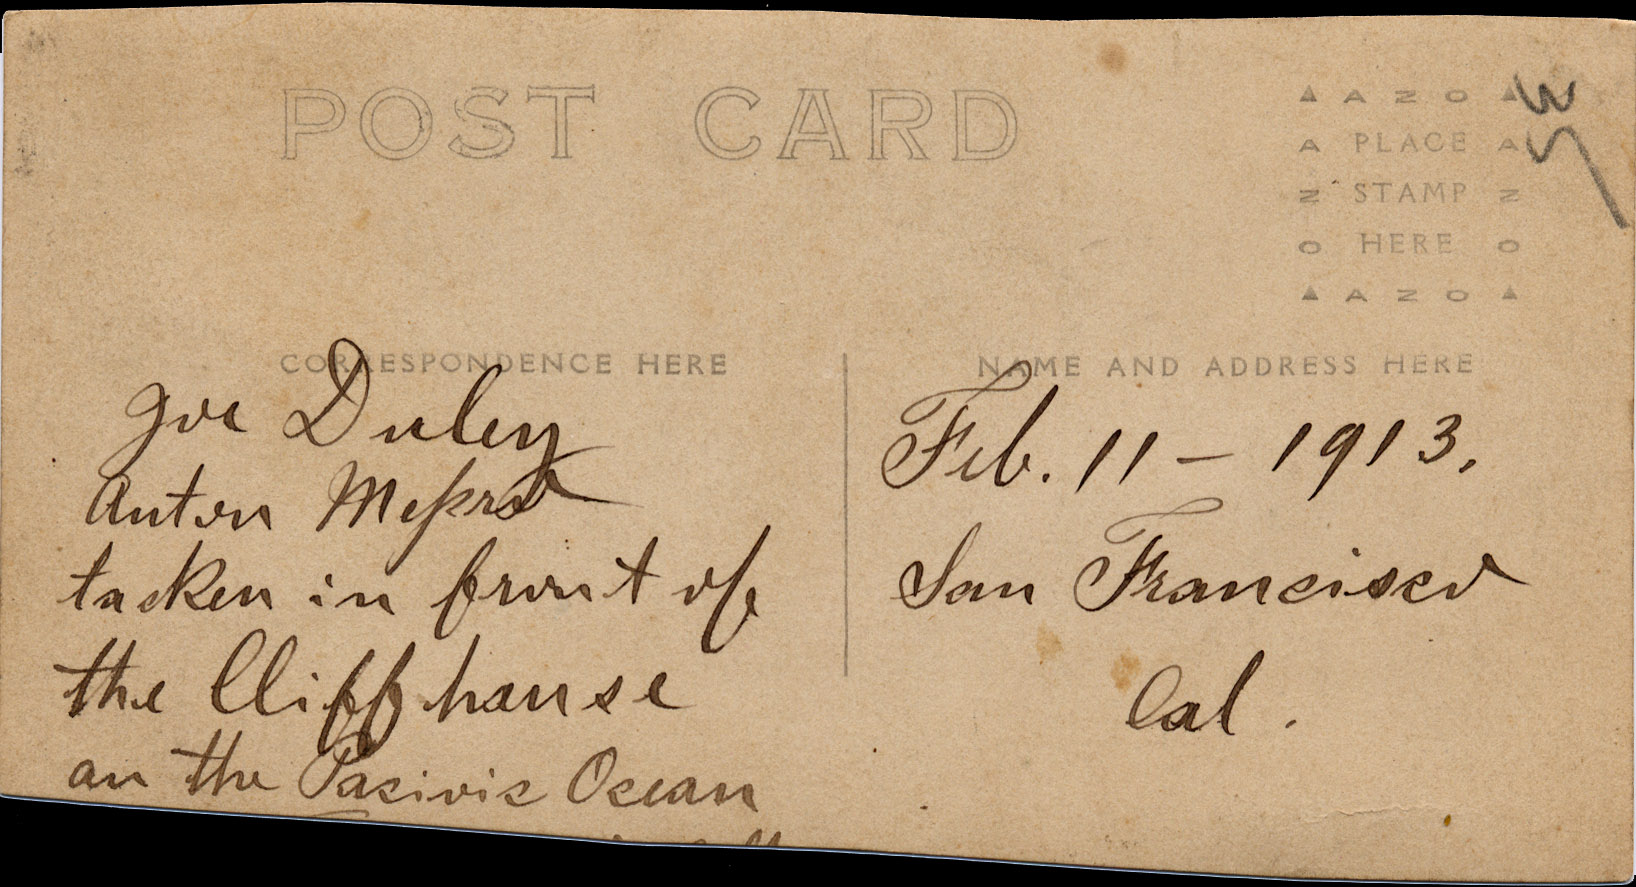 POST CARD
▲ A Z O ▲
A PLACE A
Z STAMP Z
O HERE O
▲ A Z O ▲
35
CORRESPONDENCE HERE
NAME AND ADDRESS HERE
Joe Duley
Anton
tacken in front of
the Cliff house
an the Pacivic Ocean
Feb. 11 - 1913.
San Francisco
Cal.